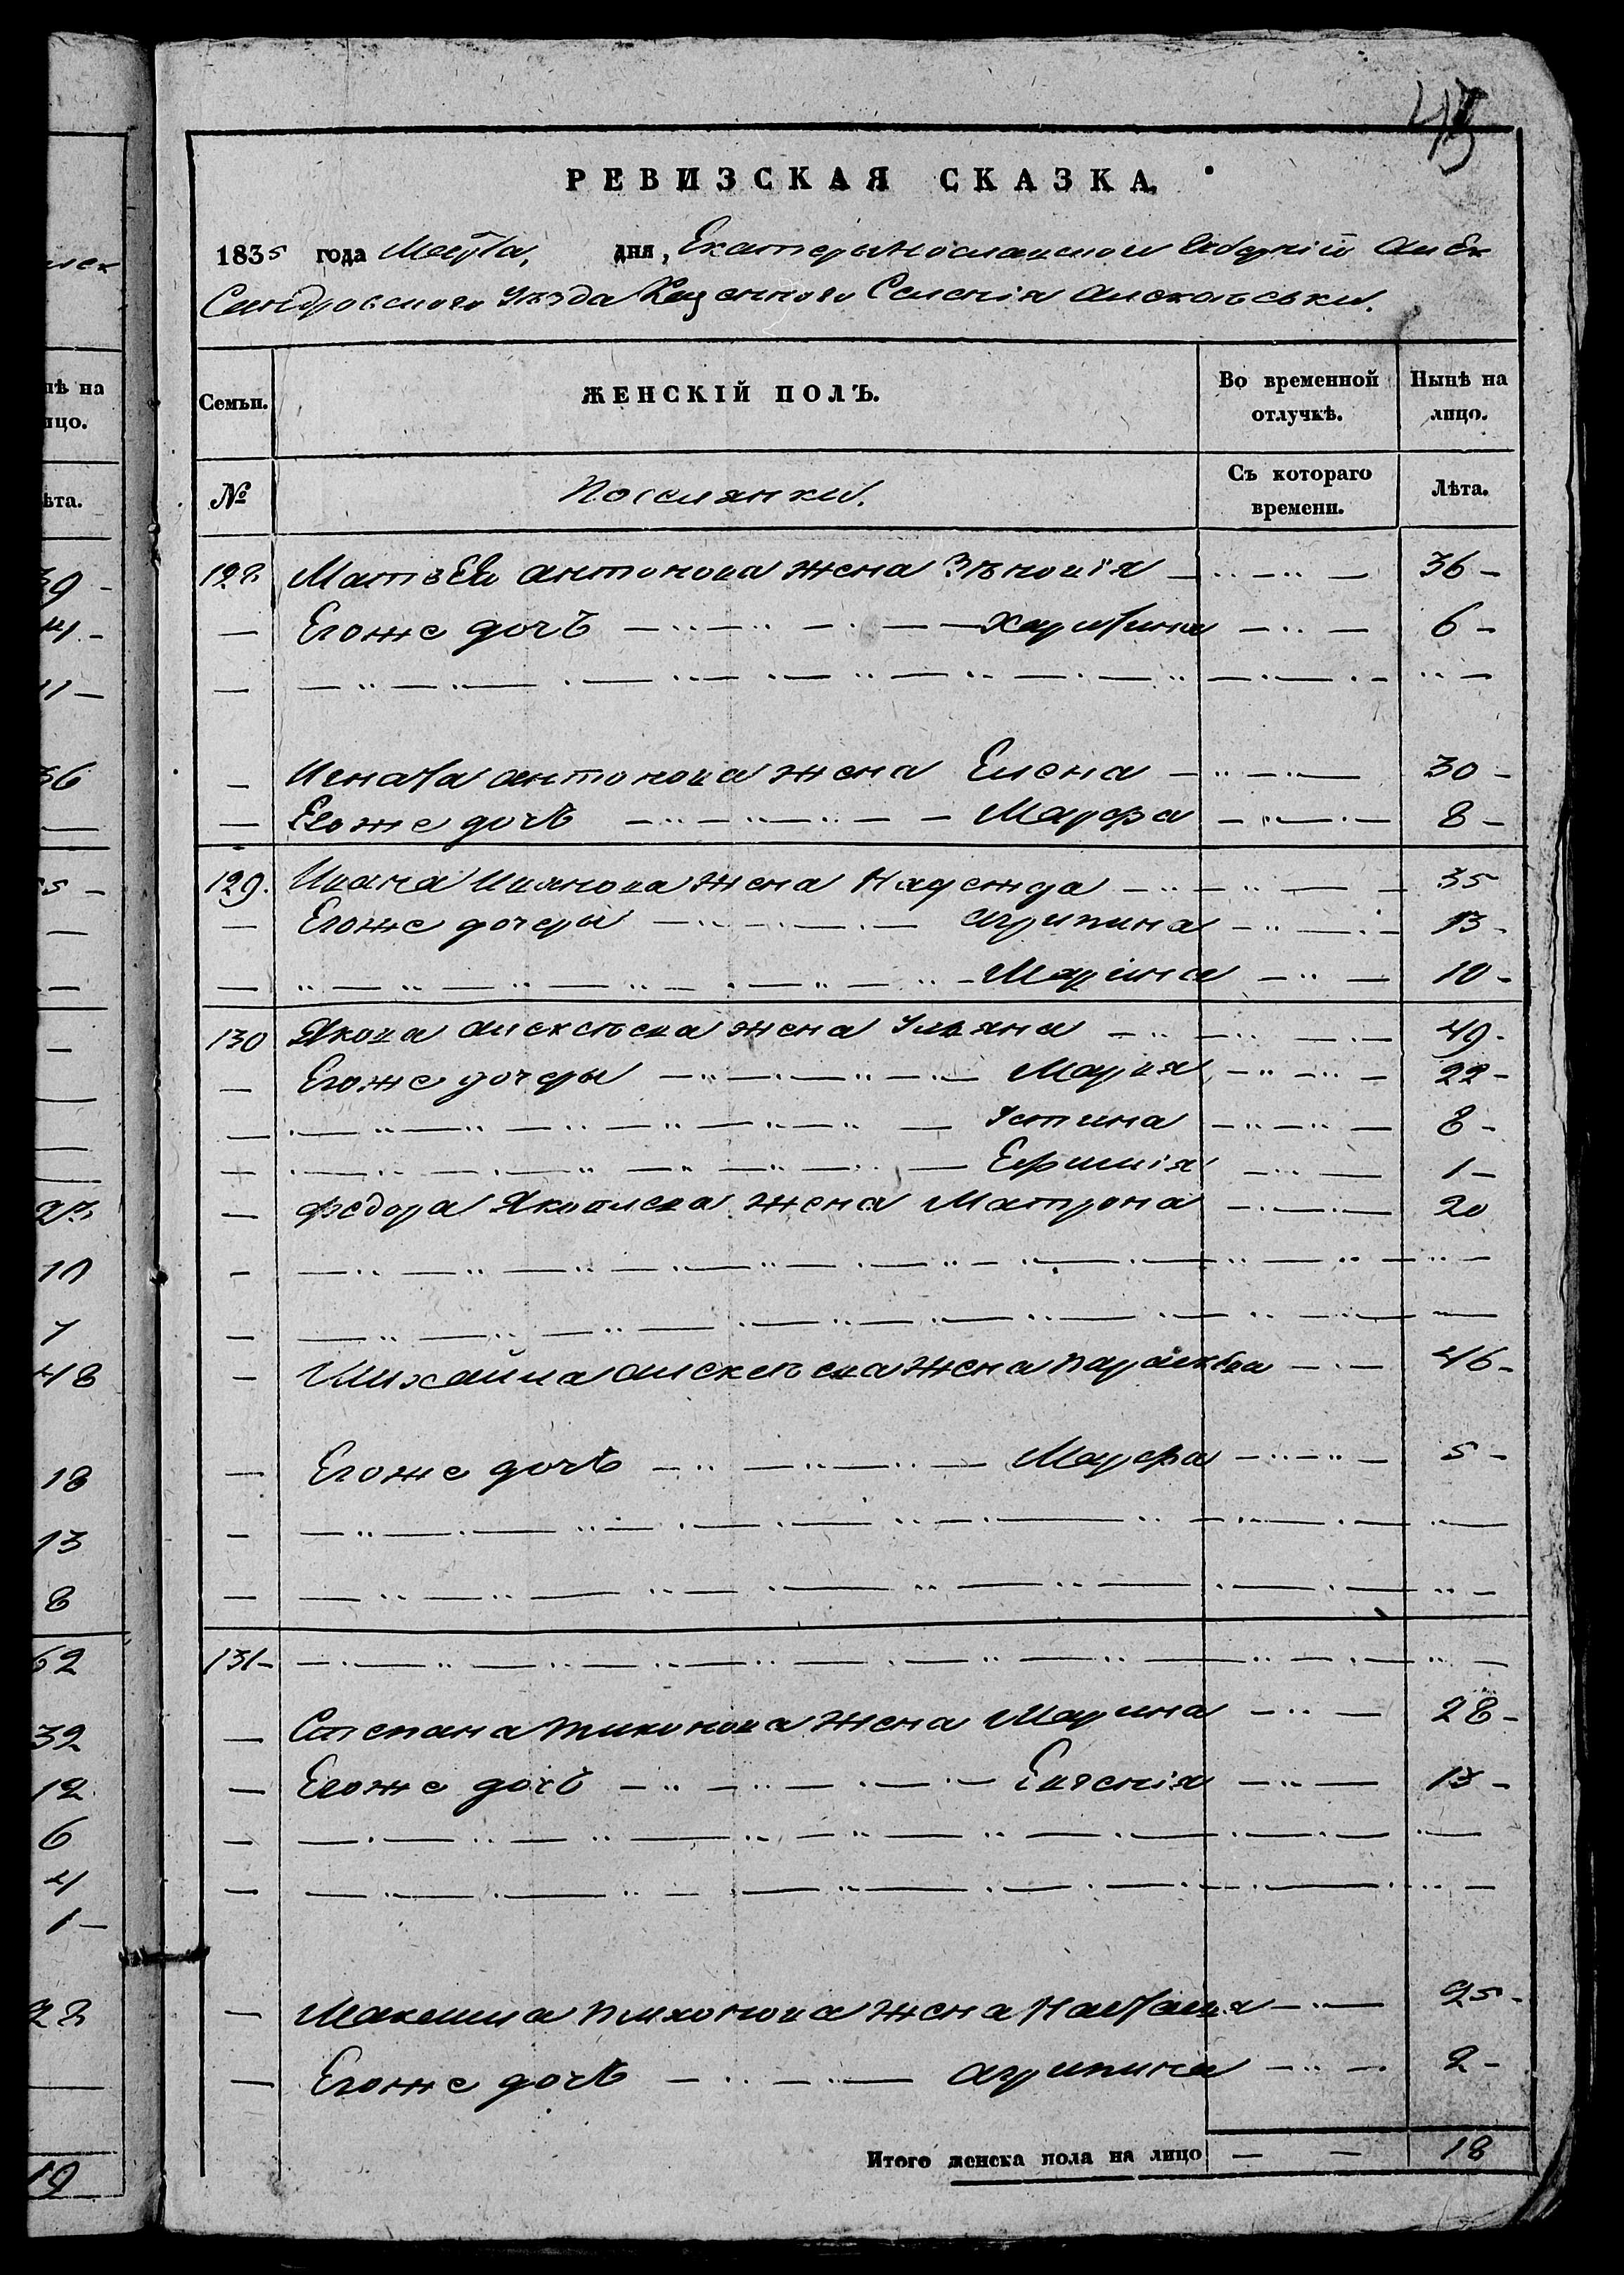 43
РЕВИЗСКАЯ СКАЗКА.
1835 года Марта, дня, Екатеринославской Губерніи Алек
Сандровскаго Уѣзда Казенного Селенія Алексѣевки.
Семьи. ЖЕНСКІЙ ПОЛЪ. Во временной отлучкѣ. Нынѣ на лицо.
№ Поселянки. Съ котораго времени. Лѣта.
128 Матвѣя Антонова жена Зѣновія 36
Егоже дочь Харитина 6
Игната Антонова жена Елена 30
Егоже дочь Марфа 8
129. Ивана Иванова жена Надежда 35
Егоже дочеры Агрипина 13
Марина 10
130 Якова Алексѣева жена Уляна 49
Егоже дочеры Мария 22
Устина 8
Ефимія 1
Федора Яковлева жена Матрона 20
Михайла Алексѣева жена Параскева 46
Егоже дочь Марфа 5
131
Степана Тихонова жена Марина 28
Егоже дочь Евгенія 13
Максима Тихонова жена Наталия 25
Егоже дочь Агрипина 2
Итого женска пола на лицо 18
нѣ на
ицо.
ѣта.
39
4
11
36
10
7
48
18
13
8
62
32
12
6
4
1
28
19